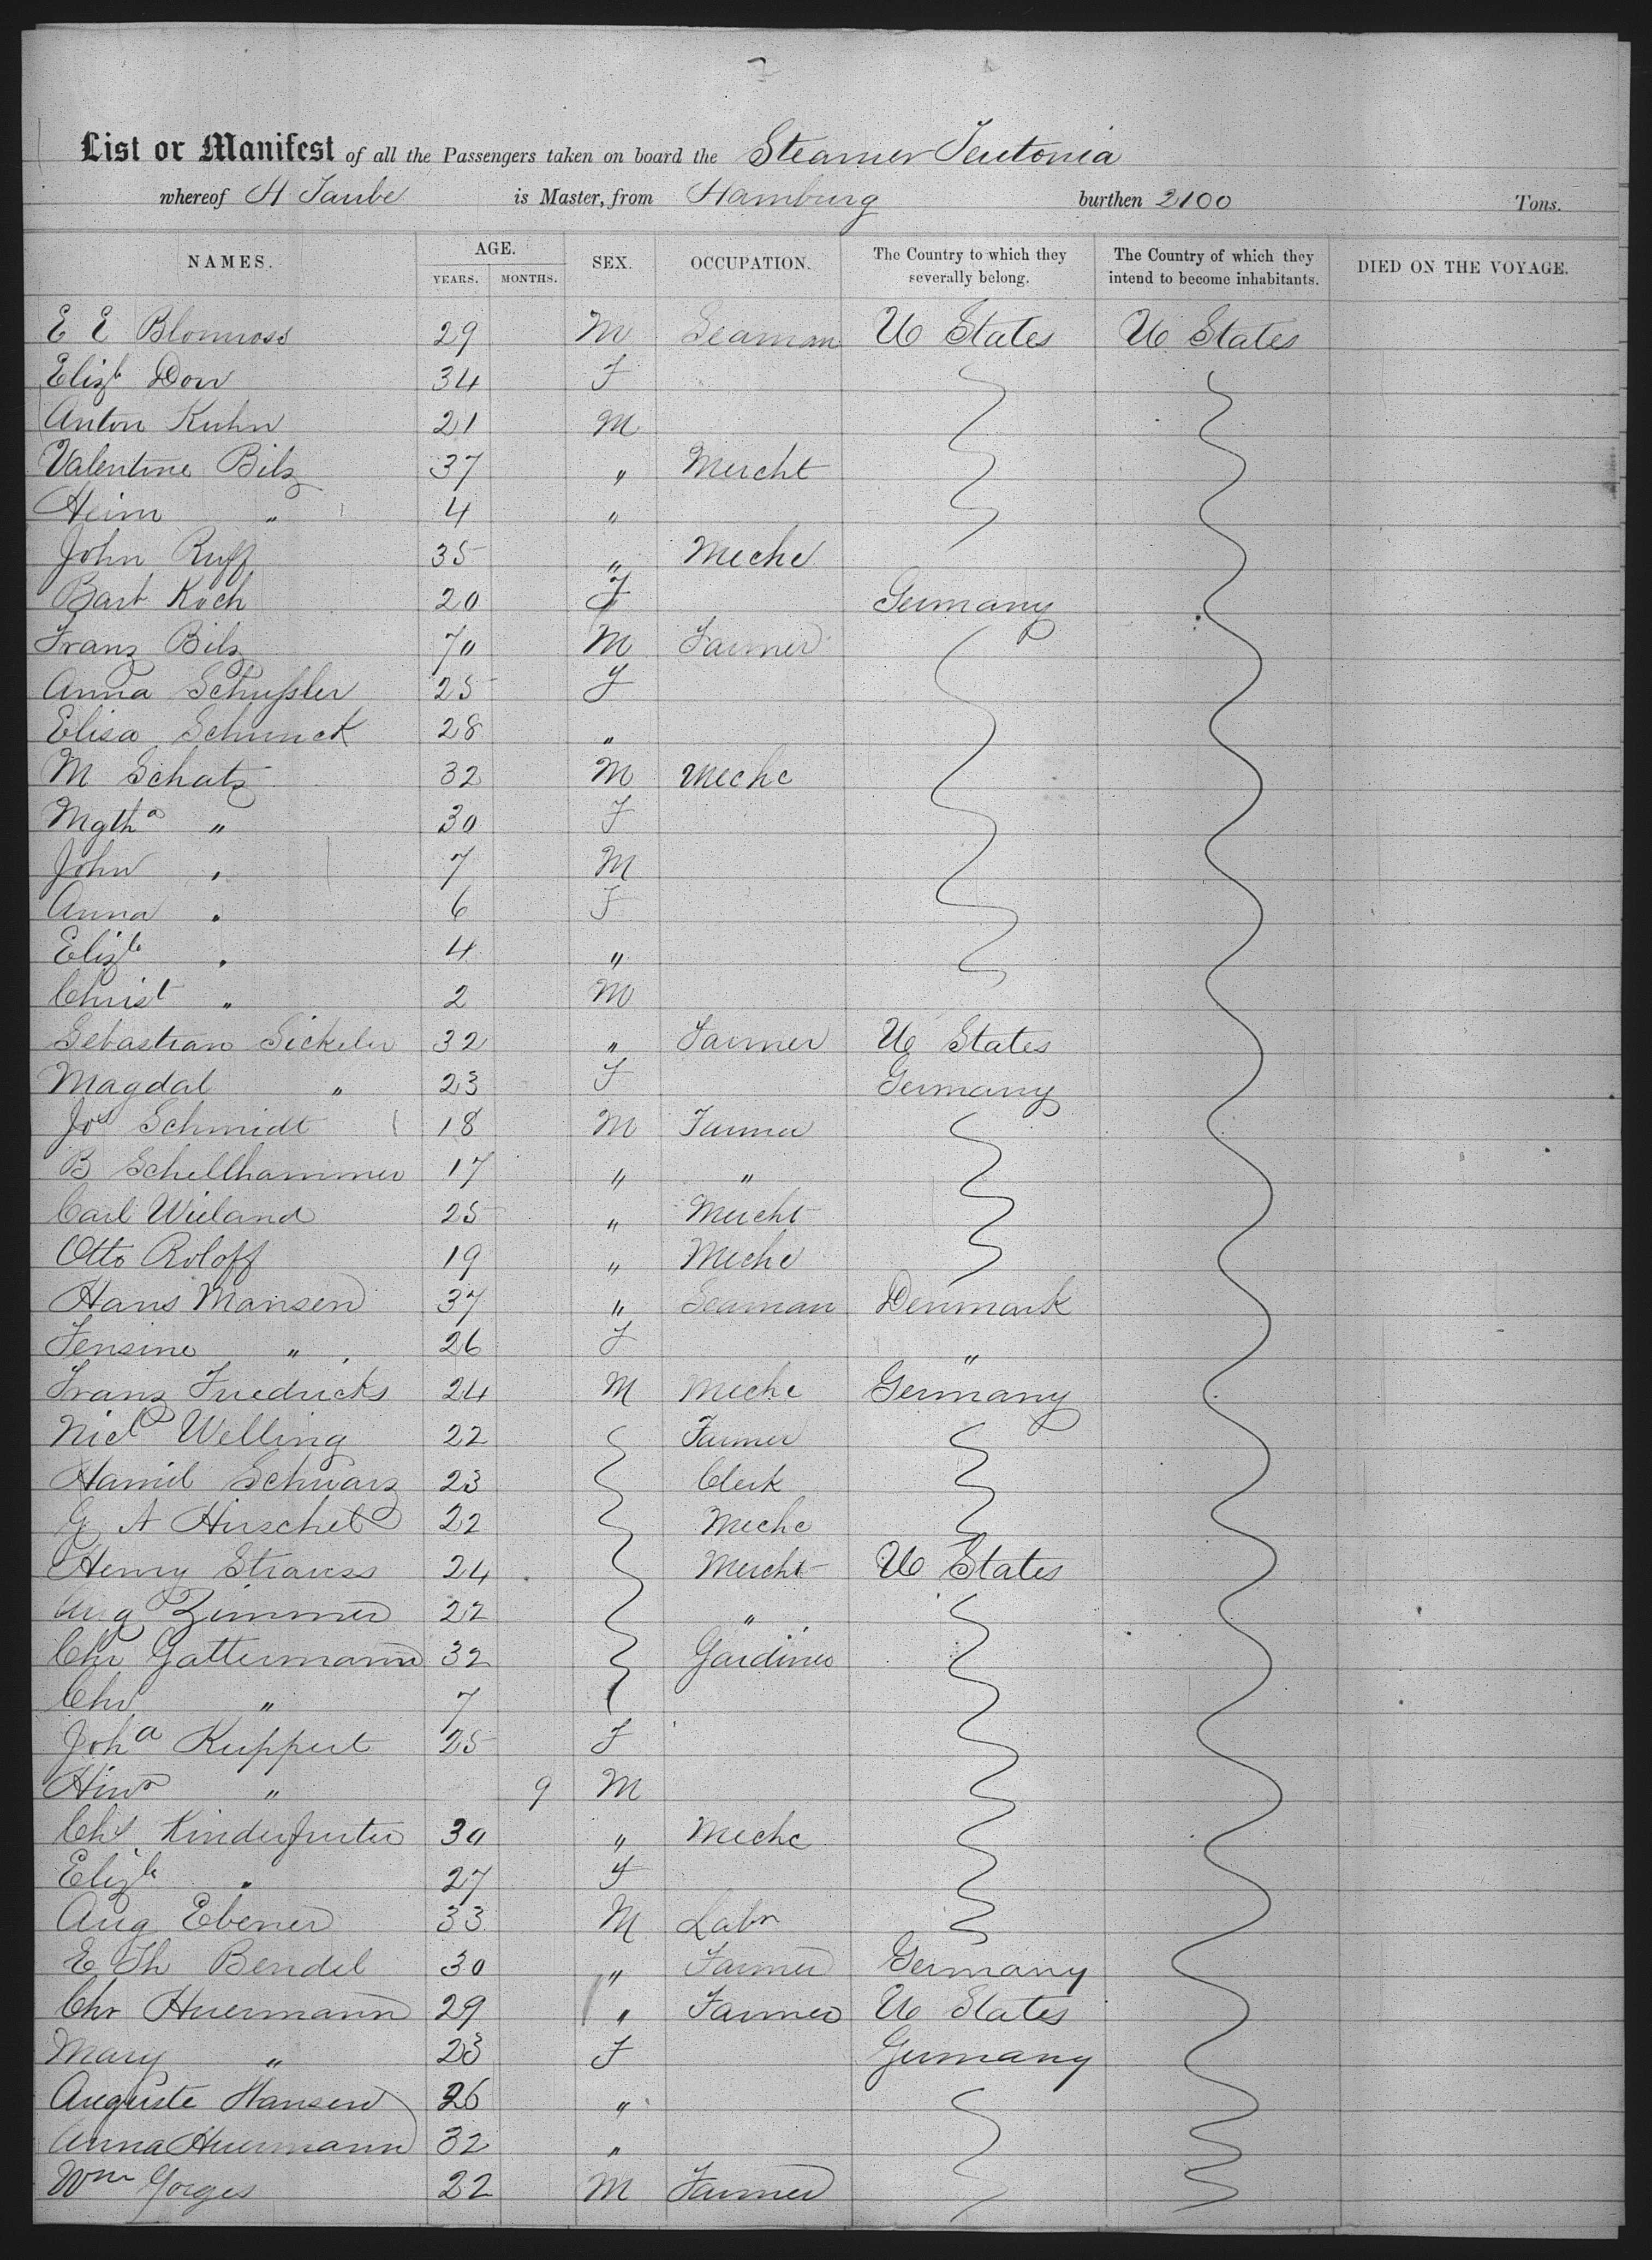 7
List or Manifest of all the Passengers taken on board the Steamer Teutonia
whereof H Taube is Master, from Hamburg burthen 2100 Tons.
NAMES. AGE. YEARS. MONTHS. SEX. OCCUPATION. The Country to which they severally belong. The Country of which they intend to become inhabitants. DIED ON THE VOYAGE.
E E Blomross 29 M Seaman U States U States
Elizh Dow 34 F
Anton Kuhn 21 M
Valentine Bilz 37 " Mercht
Heinr " 4 "
John Ruff 35 " Mechc
Barb Koch 20 F Germany
Franz Bilz 70 M Farmer
Anna Schussler 25 F
Elisa Schunck 28 "
M Schatz 32 M Mechc
Mgtha " 30 F
John " 7 M
Anna " 6 F
Elizh " 4 "
Christ " 2 M
Sebastian Sickeler 32 " Farmer U States
Magdal " 23 F Germany
Jos Schmidt 18 M Farmer
B Schellhammer 17 " "
Carl Wieland 25 " Mercht
Otto Roloff 19 " Mechc
Hans Mansen 37 " Seaman Denmark
Jensine " 26 F "
Franz Friedricks 24 M Mechc Germany
Nicl Welling 22 Farmer
Schwarz 23 Clerk
G A Hirschel 22 Mechc
Henry Strauss 24 Mercht U States
Aug Zimmer 22 "
Chr Gattermann 32 Gardiner
Chr " 7
Joha Ruppert 25 F
Hinr " 9 M
Chs 30 " Mechc
Elizh " 27 F
Aug Ebener 33 M Labr
E Th Bendel 30 " Farmer Germany
Chr Huermann 29 " Farmer U States
Mary " 23 F Germany
Auguste Hansen 26 "
Anna Huermann 32 "
Wm Gorges 22 M Farmer